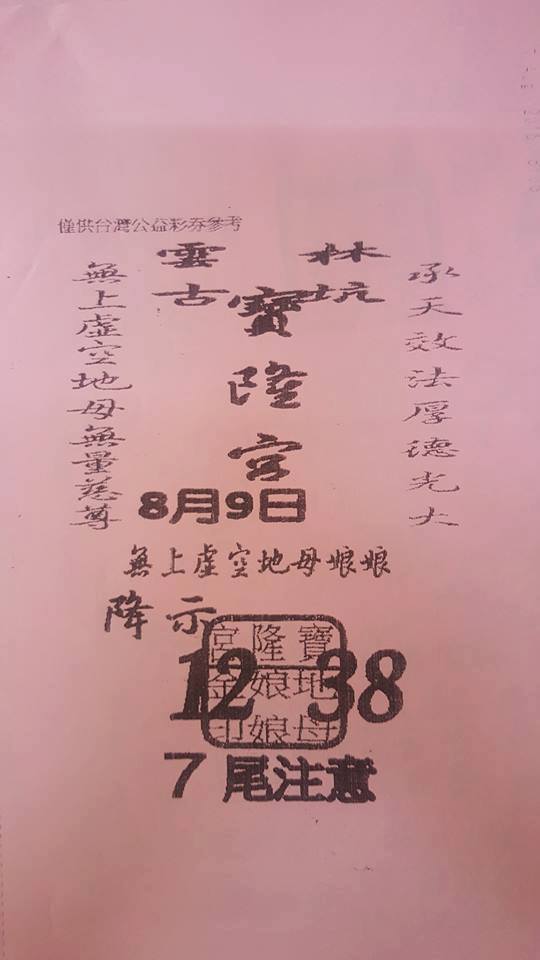 僅供台灣公益彩券參考
雲林
古坑
寶隆宮
承天效法厚德光大
無上虛空地母無量慈尊
8月9日
無上虛空地母娘娘
降示
寶隆宮
地母
娘娘
金印
12 38
7尾注意